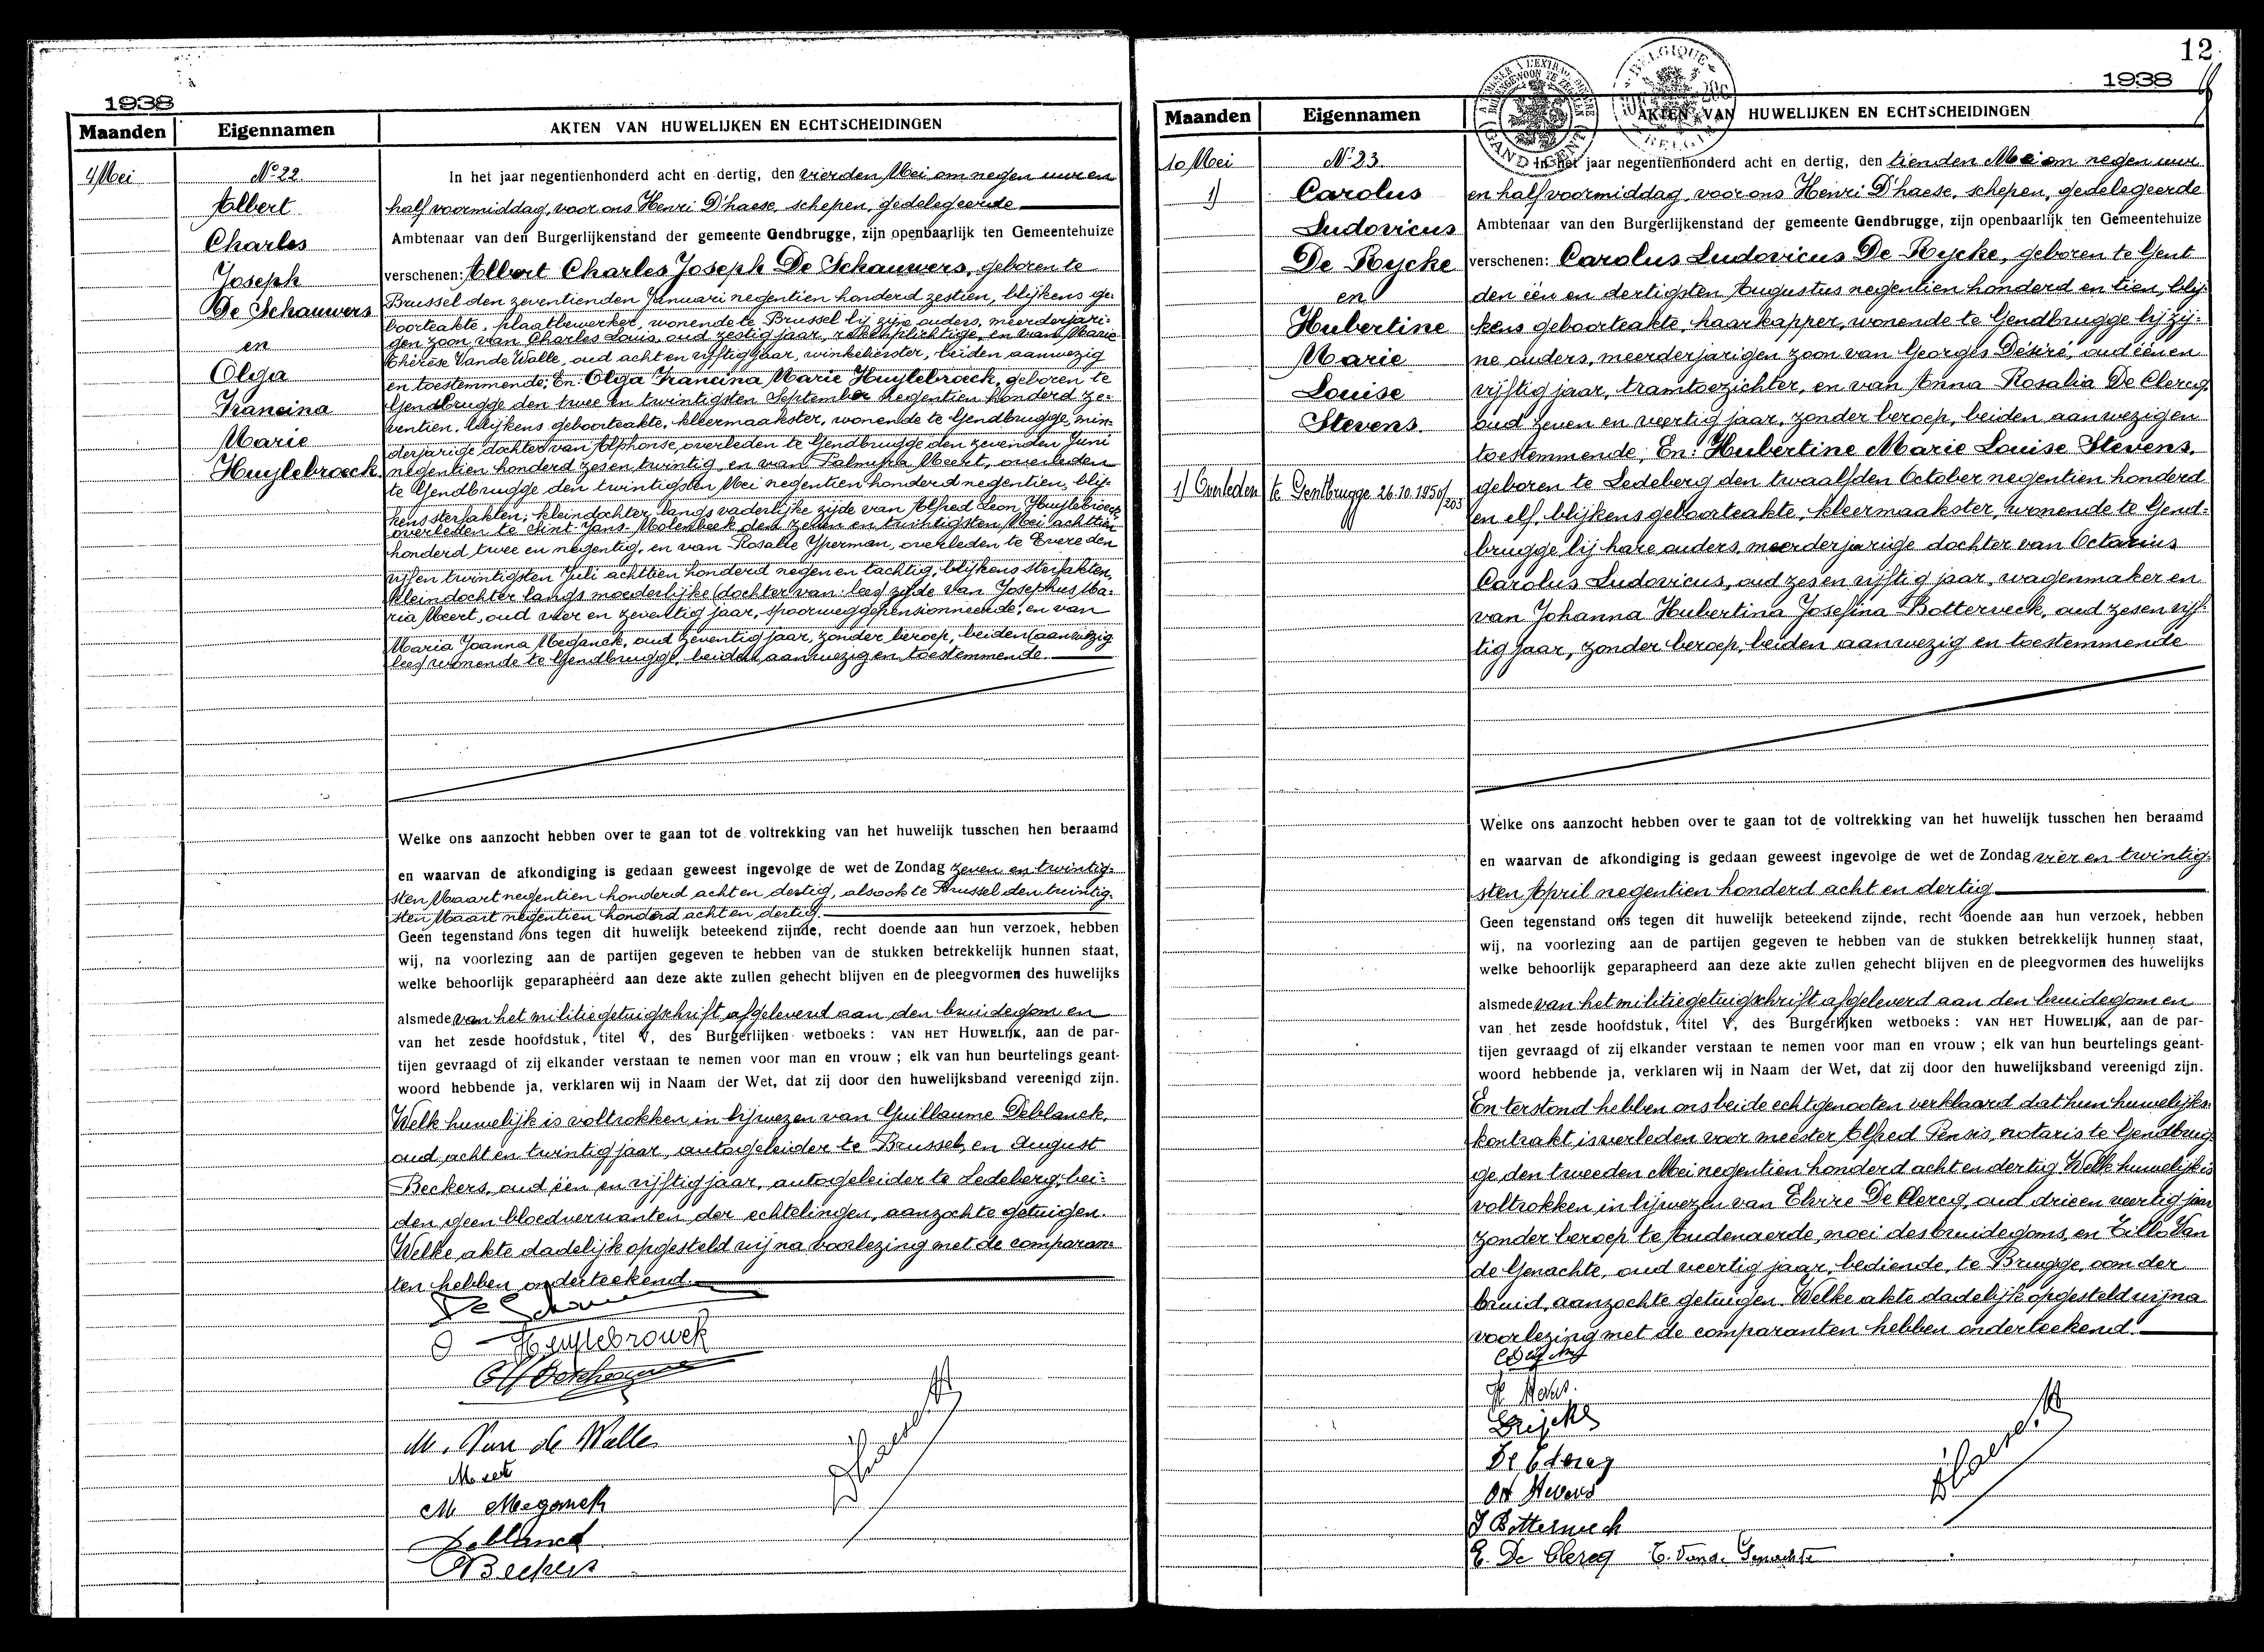 1938
Maanden
Eigennamen
AKTEN VAN HUWELIJKEN EN ECHTSCHEIDINGEN
4 Mei
No 22
Albert
Charles
Joseph
De Schauwers
en
Olga
Francina
Marie
Huylebroeck
In het jaar negentienhonderd acht en dertig, den vierden Mei om negen uur en
half voormiddag, voor ons Henri D'haese, schepen, gedelegeerde
Ambtenaar van den Burgerlijkenstand der gemeente Gendbrugge, zijn openbaarlijk ten Gemeentehuize
verschenen: Albert Charles Joseph De Schauwers, geboren te
Brussel den zeventienden Januari negentien honderd zestien, blijkens ge-
boorteakte, plaatbewerker, wonende te Brussel bij zijne ouders, meerderjari-
gen zoon van Charles Louis, oud zestig jaar, rekenplichtige, en van Marie
Thérèse Van de Walle, oud acht en vijftig jaar, winkelierster, beiden aanwezig
en toestemmende; En: Olga Francina Marie Huylebroeck, geboren te
Gendbrugge den twee en twintigsten September negentien honderd ze-
ventien, blijkens geboorteakte, kleermaakster, wonende te Gendbrugge, min-
derjarige dochter van Alphonse, overleden te Gendbrugge den zevenden Juni
negentien honderd zes en twintig en van Palmyra Meert, overleden
te Gendbrugge den twintigsten Mei negentien honderd negentien, blij-
kens sterfakten; kleindochter langs vaderlijke zijde van Alfred Leon Huylebroeck
overleden te Sint Jans Molenbeek den zeven en twintigsten Mei achttien
honderd twee en negentig, en van Rosalie Yperman, overleden te Evere den
vijf en twintigsten Juli achttien honderd negen en tachtig, blijkens sterfakten,
kleindochter langs moederlijke (dochter van: lees) zijde van Josephus Ma-
ria Meert, oud vier en zeventig jaar, spoorweggepensionneerde, en van
Maria Joanna Meganck, oud zeventig jaar, zonder beroep, beiden (aanwezig
lees) wonende te Gendbrugge, beiden aanwezig en toestemmende.
Welke ons aanzocht hebben over te gaan tot de voltrekking van het huwelijk tusschen hen beraamd
en waarvan de afkondiging is gedaan geweest ingevolge de wet de Zondag zeven en twintig-
sten Maart negentien honderd acht en dertig, alsook te Brussel den twintig-
sten Maart negentien honderd acht en dertig.
Geen tegenstand ons tegen dit huwelijk beteekend zijnde, recht doende aan hun verzoek, hebben
wij, na voorlezing aan de partijen gegeven te hebben van de stukken betrekkelijk hunnen staat,
welke behoorlijk geparapheerd aan deze akte zullen gehecht blijven en de pleegvormen des huwelijks
alsmede van het militiegetuigschrift afgeleverd aan den bruidegom en
van het zesde hoofdstuk, titel V, des Burgerlijken wetboeks: VAN HET HUWELIJK, aan de par-
tijen gevraagd of zij elkander verstaan te nemen voor man en vrouw; elk van hun beurtelings geant-
woord hebbende ja, verklaren wij in Naam der Wet, dat zij door den huwelijksband vereenigd zijn.
Welk huwelijk is voltrokken in bijwezen van Guillaume Deblanck,
oud acht en twintig jaar, autogeleider te Brussel, en August
Beckers, oud één en vijftig jaar, autogeleider te Ledeberg, bei-
den geen bloedverwanten der echtelingen, aanzochte getuigen.
Welke akte dadelijk opgesteld wij na voorlezing met de comparan-
ten hebben onderteekend.
O Huylebrouck
M. Van de Walle
Meert
M Meganck
Deblanck
Beckers
12
1938
Maanden
Eigennamen
AKTEN VAN HUWELIJKEN EN ECHTSCHEIDINGEN
10 Mei
No 23.
1)
Carolus
Ludovicus
De Rycke
en
Hubertine
Marie
Louise
Stevens.
1) Overleden te Gentbrugge 26.10.1950/203
In het jaar negentienhonderd acht en dertig, den tienden Mei om negen uur
en half voormiddag, voor ons Henri D'haese, schepen, gedelegeerde
Ambtenaar van den Burgerlijkenstand der gemeente Gendbrugge, zijn openbaarlijk ten Gemeentehuize
verschenen: Carolus Ludovicus De Rycke, geboren te Gent
den één en dertigsten Augustus negentien honderd en tien, blij-
kens geboorteakte, haarkapper, wonende te Gendbrugge bij zij-
ne ouders, meerderjarigen zoon van Georges Désiré, oud één en
vijftig jaar, tramtoezichter, en van Anna Rosalia De Clercq,
oud zeven en veertig jaar, zonder beroep, beiden aanwezig en
toestemmende; En: Hubertine Marie Louise Stevens,
geboren te Ledeberg den twaalfden October negentien honderd
en elf, blijkens geboorteakte, kleermaakster, wonende te Gend-
brugge bij hare ouders, meerderjarige dochter van Octavius
Carolus Ludovicus, oud zes en vijftig jaar, wagenmaker en
van Johanna Hubertina Josefina Botterweck, oud zes en vijf-
tig jaar, zonder beroep, beiden aanwezig en toestemmende
Welke ons aanzocht hebben over te gaan tot de voltrekking van het huwelijk tusschen hen beraamd
en waarvan de afkondiging is gedaan geweest ingevolge de wet de Zondag vier en twintig-
sten April negentien honderd acht en dertig
Geen tegenstand ons tegen dit huwelijk beteekend zijnde, recht doende aan hun verzoek, hebben
wij, na voorlezing aan de partijen gegeven te hebben van de stukken betrekkelijk hunnen staat,
welke behoorlijk geparapheerd aan deze akte zullen gehecht blijven en de pleegvormen des huwelijks
alsmede van het militiegetuigschrift afgeleverd aan den bruidegom en
van het zesde hoofdstuk, titel V, des Burgerlijken wetboeks: VAN HET HUWELIJK, aan de par-
tijen gevraagd of zij elkander verstaan te nemen voor man en vrouw; elk van hun beurtelings geant-
woord hebbende ja, verklaren wij in Naam der Wet, dat zij door den huwelijksband vereenigd zijn.
En terstond hebben ons beide echtgenooten verklaard dat hun huwelijks-
kontrakt is verleden voor meester Alfred Pensis, notaris te Gendbrug-
ge den tweeden Mei negentien honderd acht en dertig. Welk huwelijk is
voltrokken in bijwezen van Elvire De Clercq, oud drie en veertig jaar
zonder beroep te Audenaerde, moei des bruidegoms, en Tillo Van
de Genachte, oud veertig jaar, bediende, te Brugge, oom der
bruid, aanzochte getuigen. Welke akte dadelijk opgesteld wij na
voorlezing met de comparanten hebben onderteekend.
De Clercq
Oct Stevens
J Botterweck
E. De Clercq T. Vande Genachte